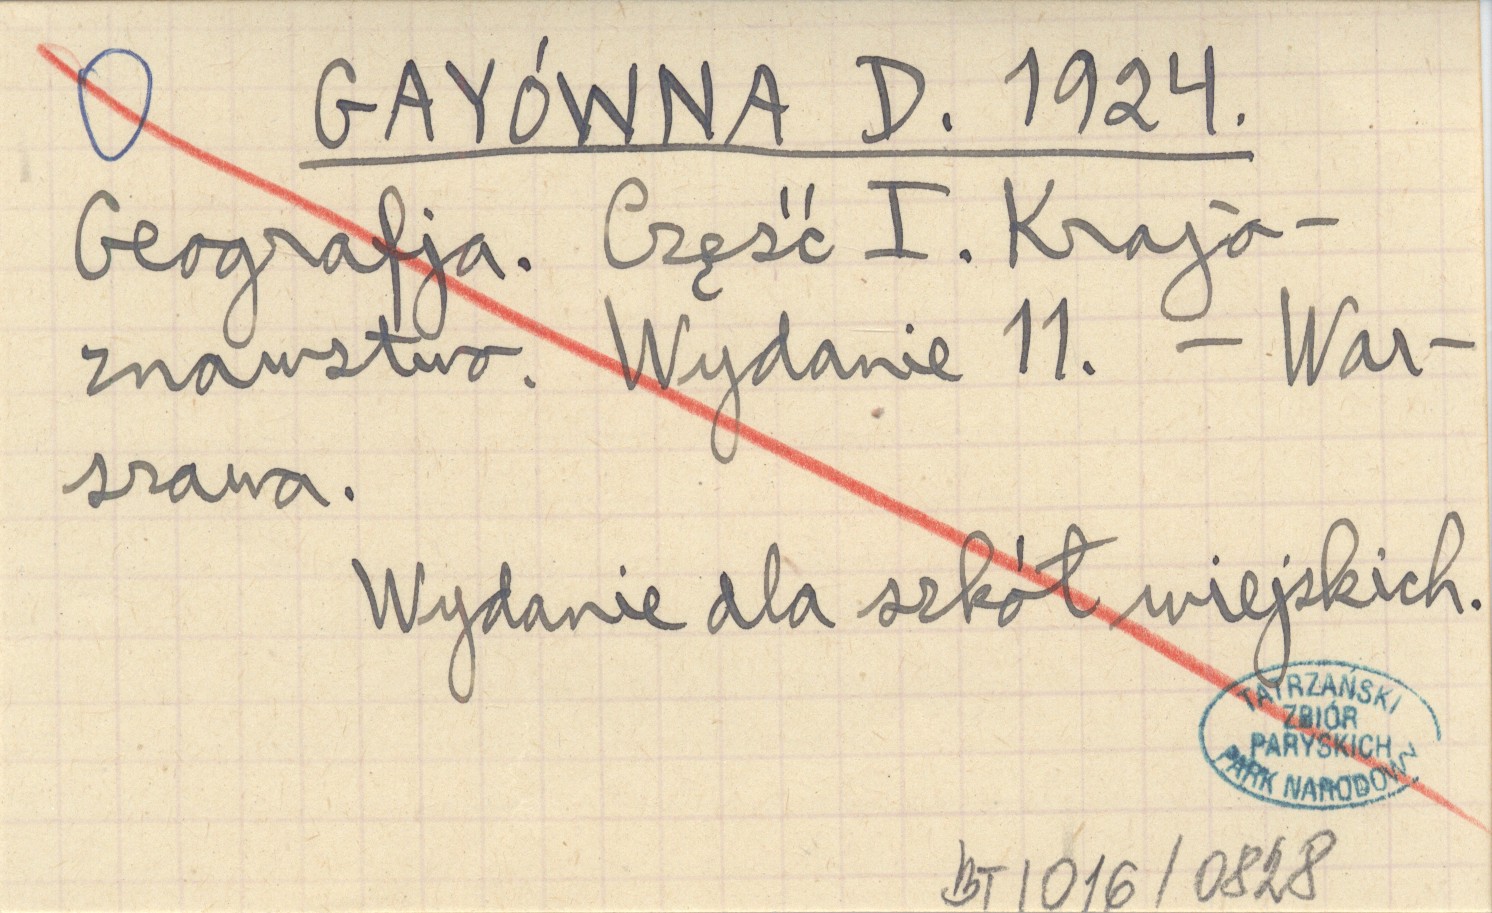 GAYÓWNA D. 1924.
Geografja. Część I. Krajo-
znawstwo. Wydanie 11. – War-
szawa.
Wydanie dla szkół wiejskich.
TATRZAŃSKI
ZBIÓR
PARYSKICH
PARK NARODOWY
BT/016/0828